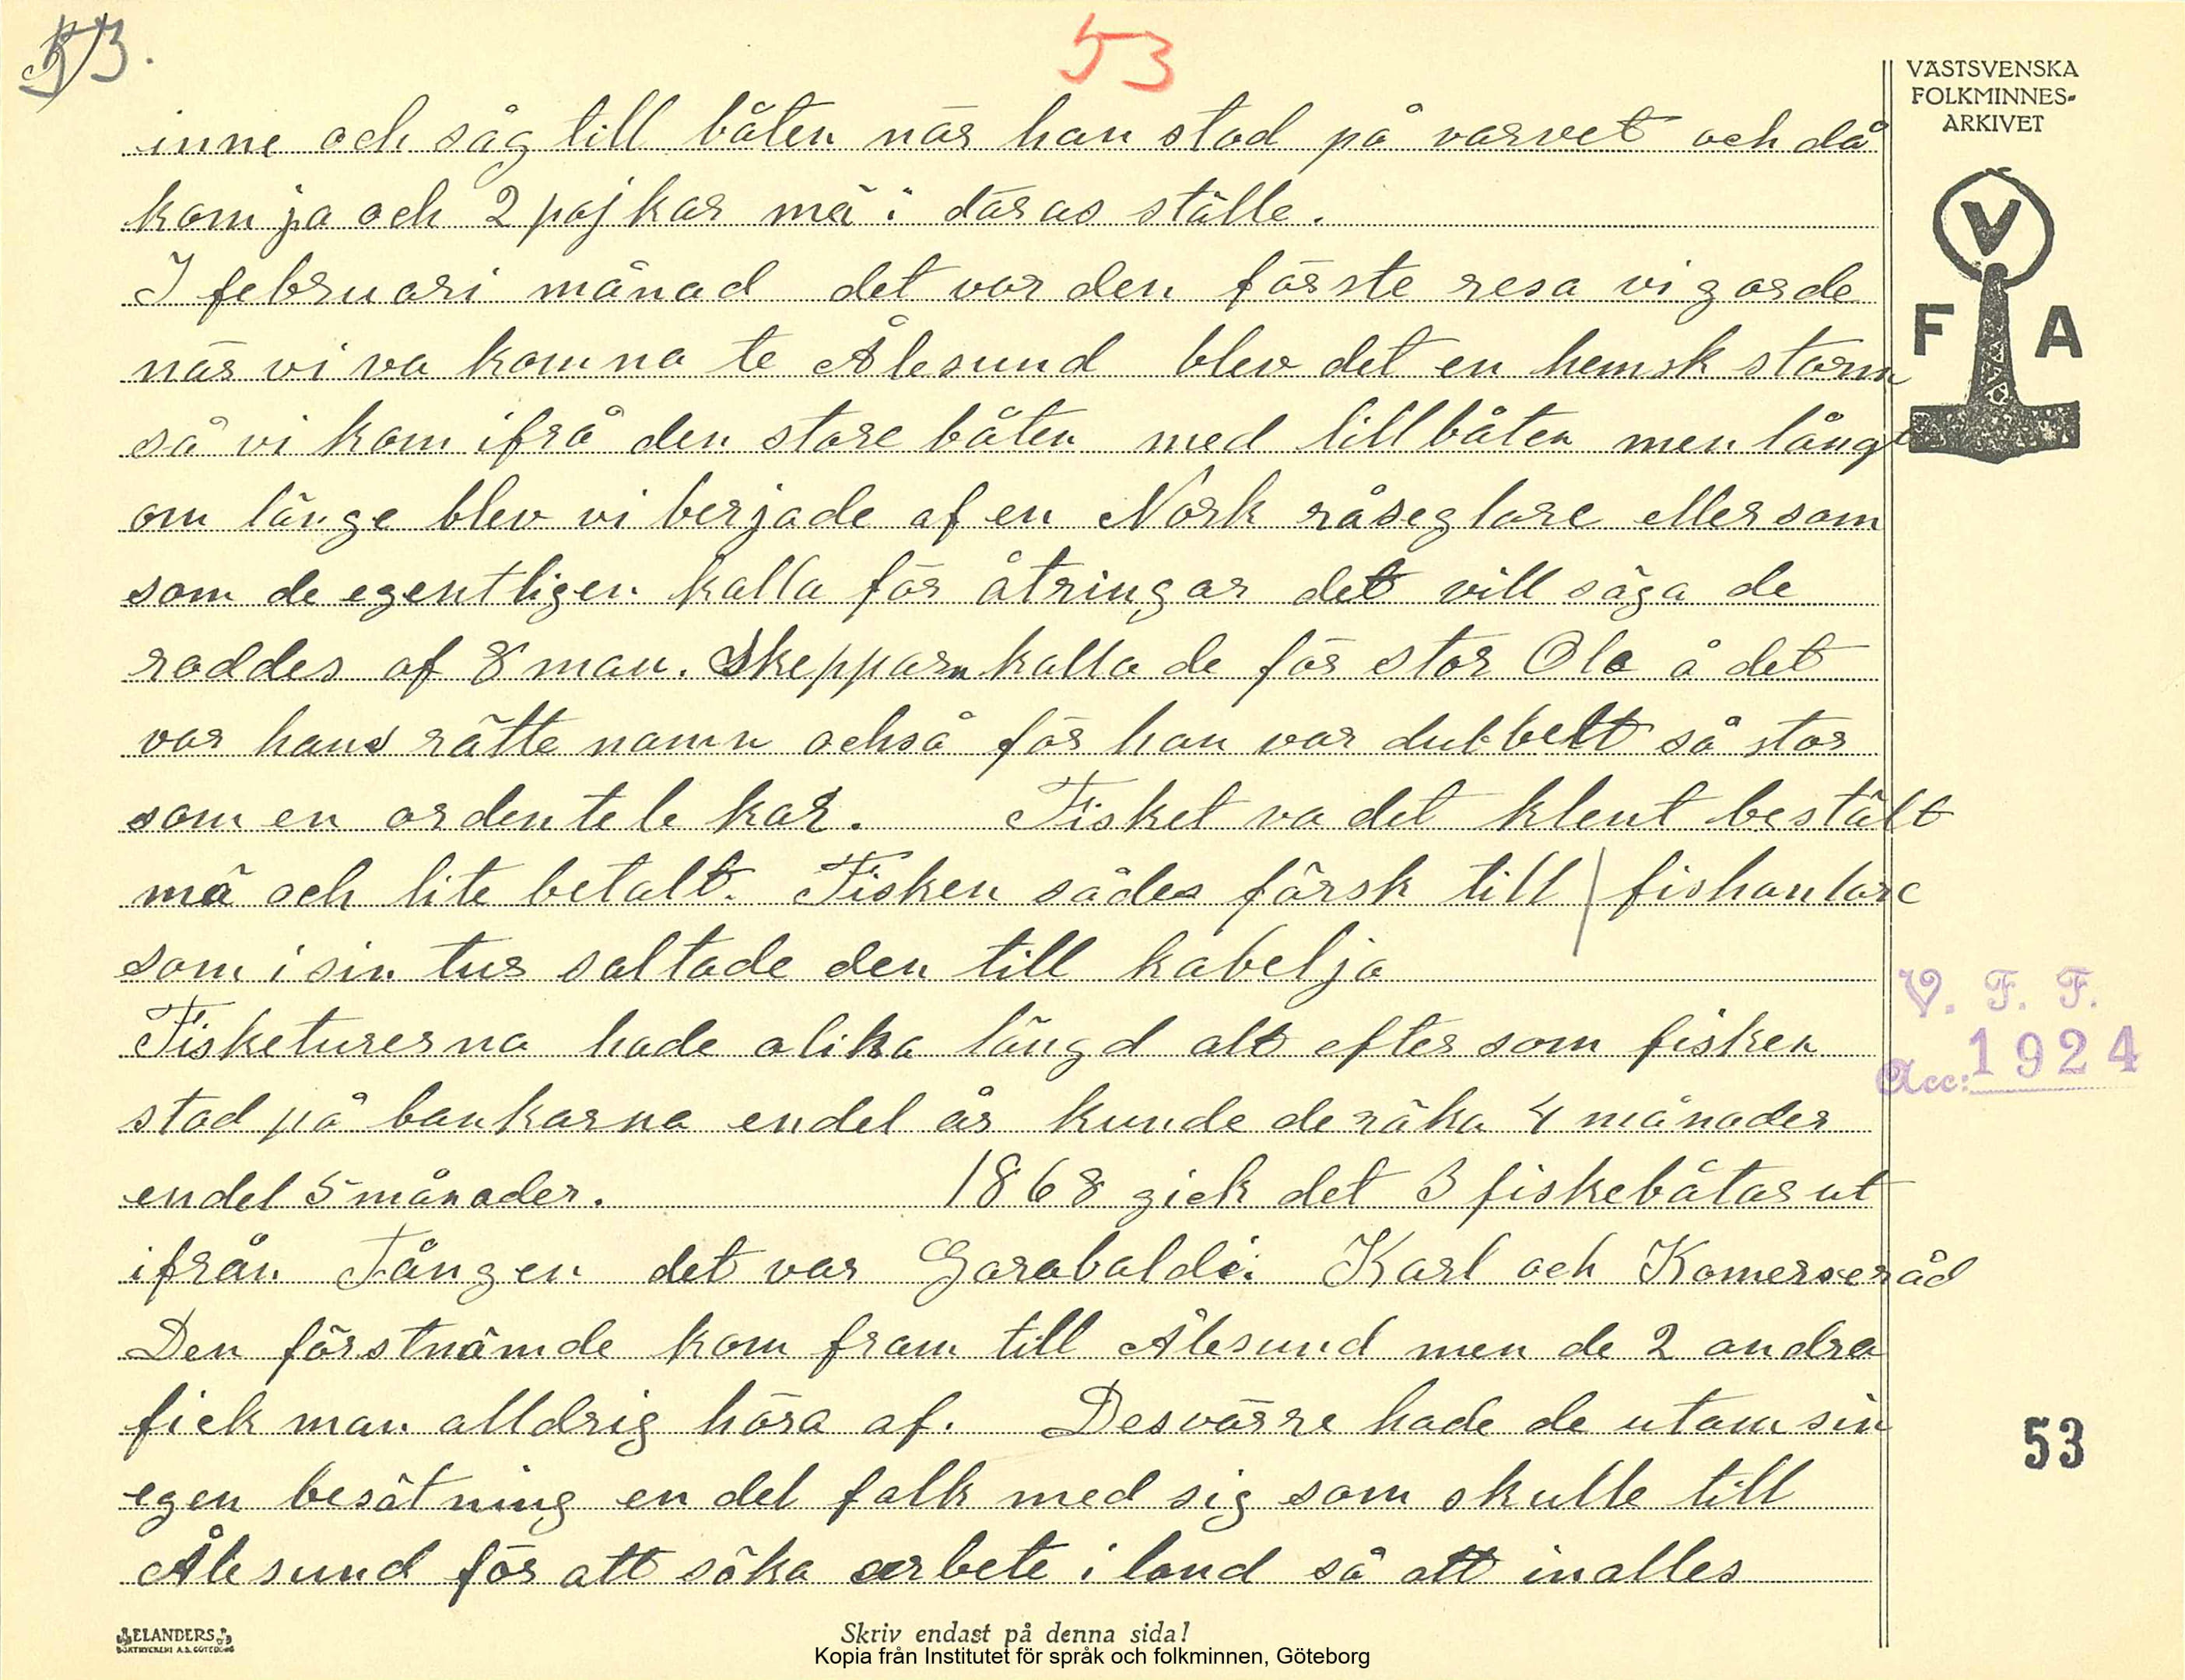 53.
53
VÄSTSVENSKA
FOLKMINNES-
ARKIVET
V
F A
inne och såg till båten när han stod på varvet och då
kom ja och 2 pojkar mä i däras ställe.
I februari månad det var den förste resa vi gorde
när vi va komna te Ålesund blev det en hemsk storm
så vi kom ifrå den store båten med lillbåten men långt
om länge blev vi berjade af en Nork råseglare eller som
som de egentligen kalla för åtringar det vill säga de
roddes af 8 man. Skepparn kalla de för stor Ola å det
var hans rätte namn också för han var dubbelt så stor
som en ordentele kar. Fisket va det klent bestält
mä och lite betalt. Fisken sådes färsk till fishanlare
som i sin tur saltade den till kabelja
Fisketurerna hade olika längd alt efter som fisken
stod på bankarna endel år kunde de räka 4 månader
endel 5 månader. 1868 gick det 3 fiskebåtar ut
ifrån Tången det var Garabaldi: Karl och Komerseråd
Den förstnämde kom fram till Ålesund men de 2 andra
fick man alldrig höra af. Desvärre hade de utom sin
egen besätning en del folk med sig som skulle till
Ålesund för att söka arbete i land så att inalles
V. F. F.
Acc: 1924
53
ELANDERS
BOKTRYCKERI A.B. GÖTEBORG
Skriv endast på denna sida!
Kopia från Institutet för språk och folkminnen, Göteborg